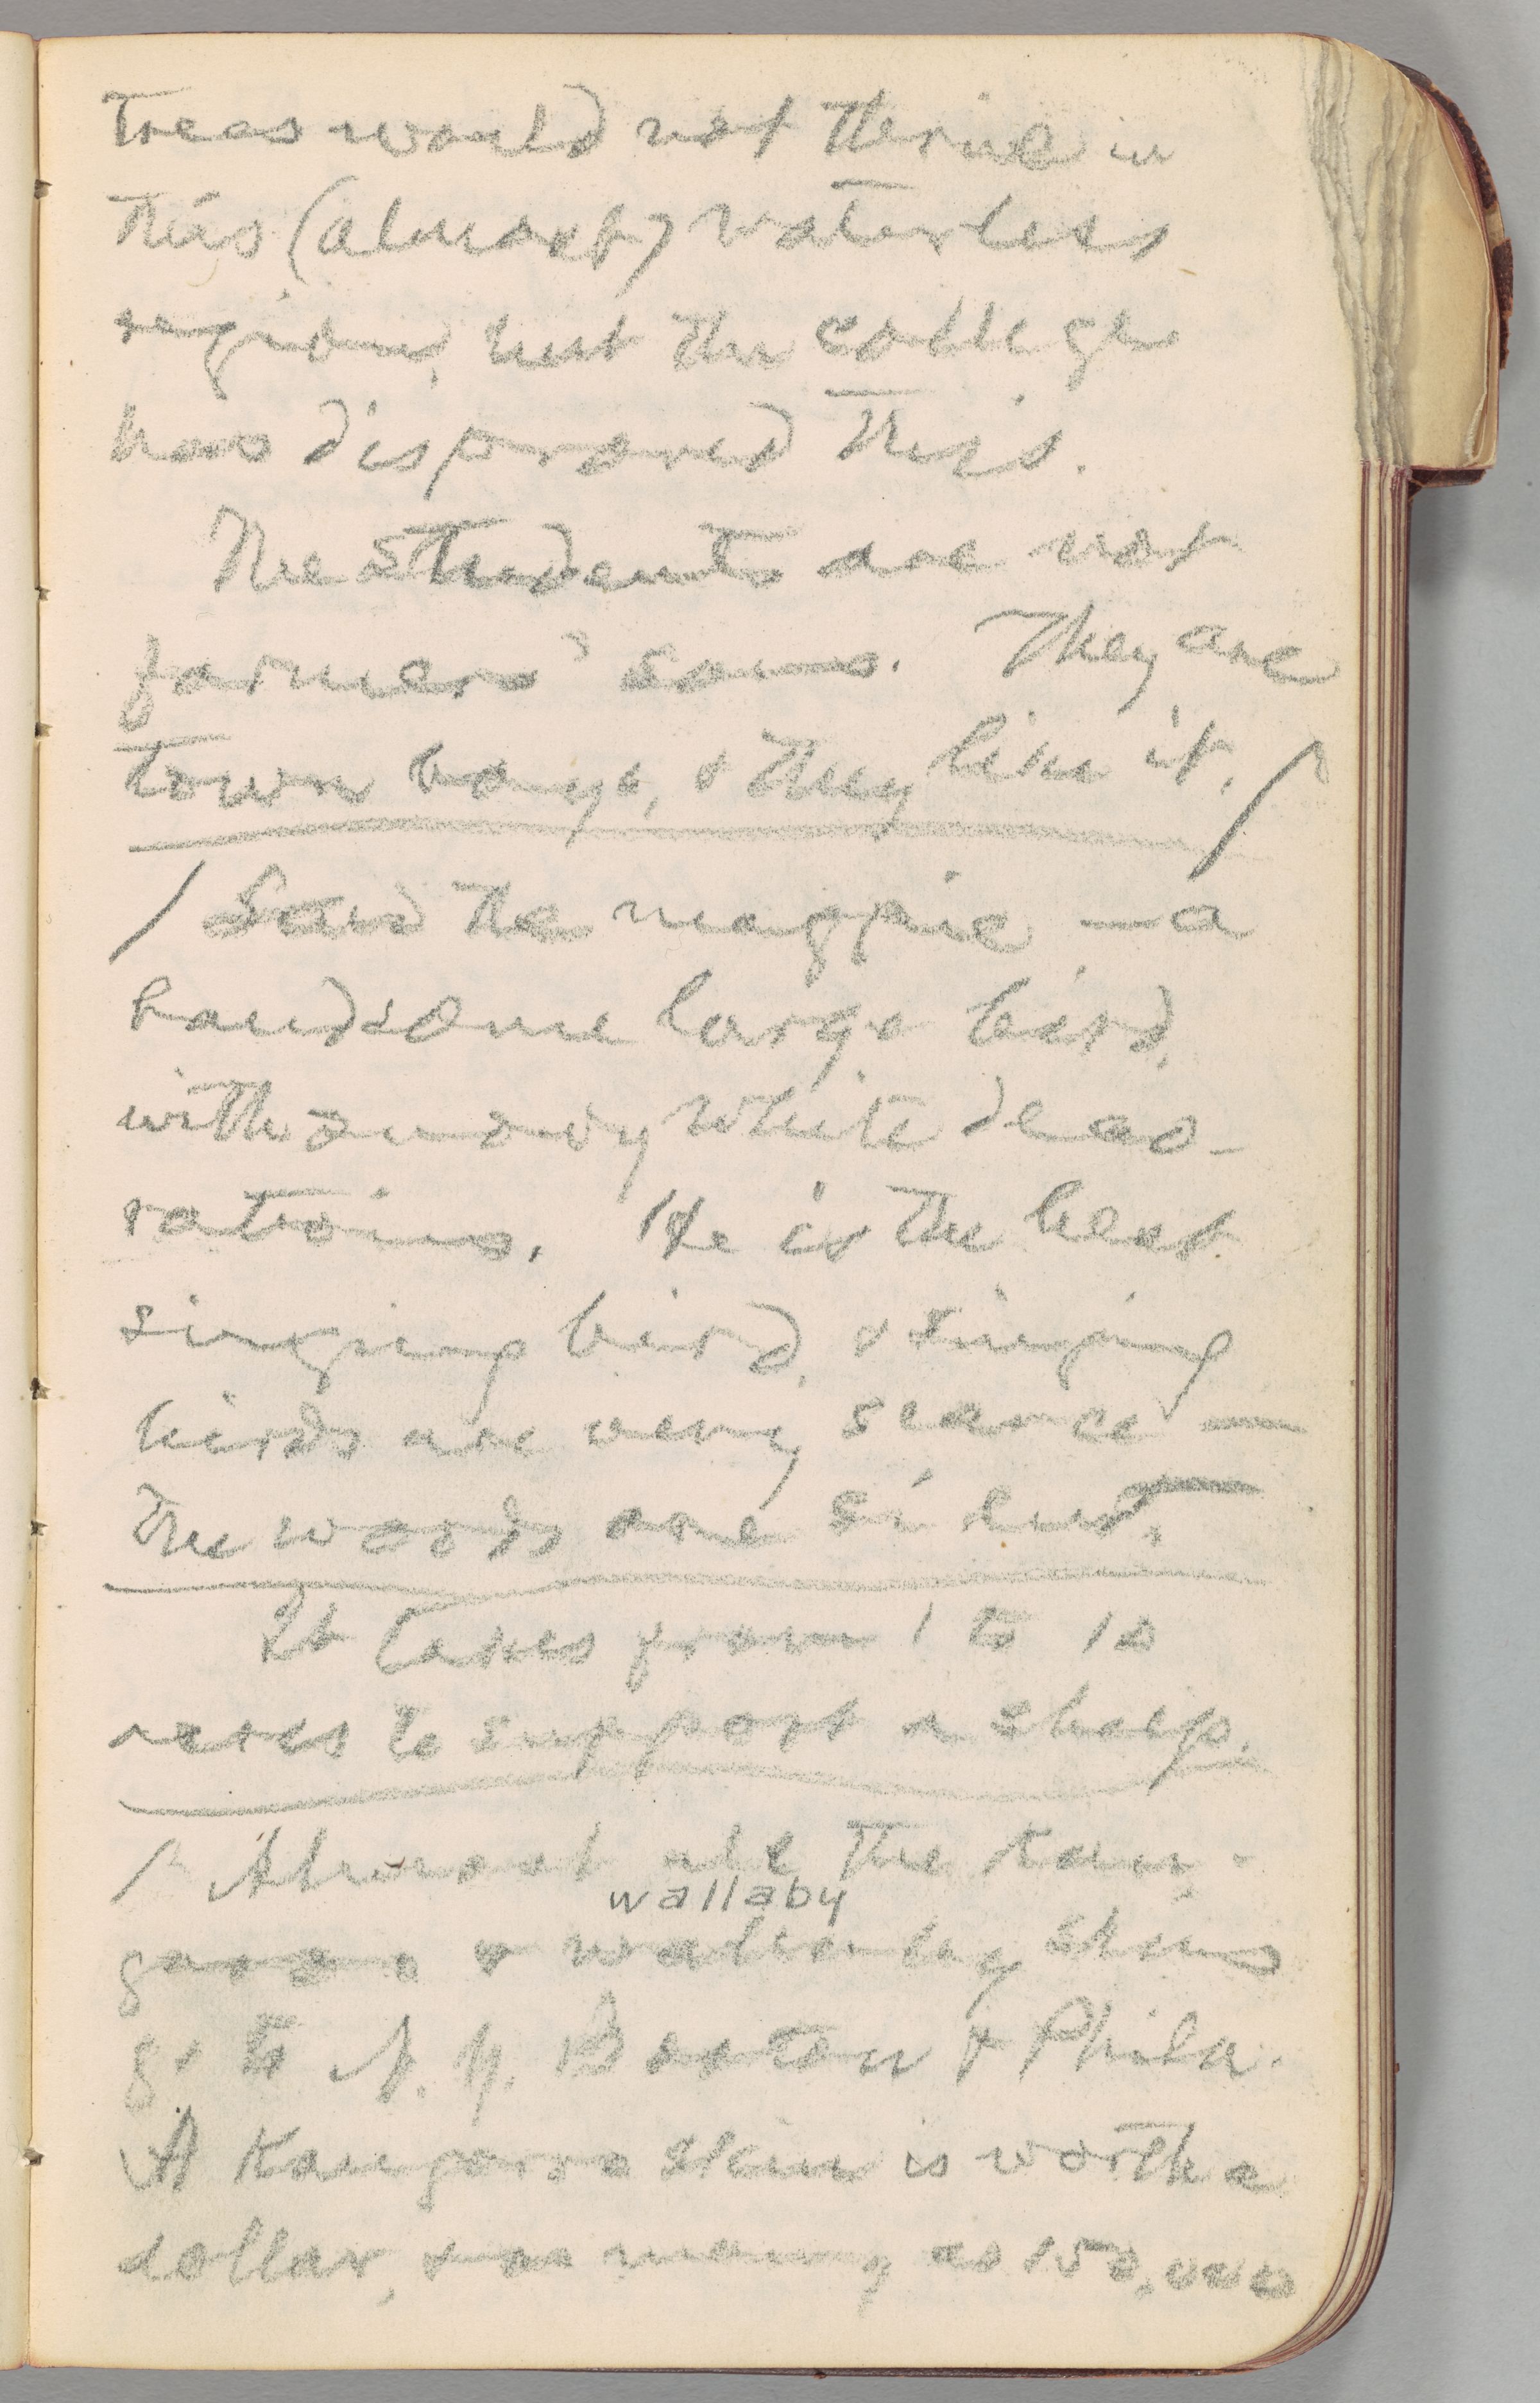 trees would not thrive in
this (almost) waterless
region, but the college
has disproved this.
The students are not
farmers' sons. They are
town boys, & they like it.
Saw the magpie — a
handsome large bird,
with snowy white deco-
rations. He is the best
singing bird, & singing
birds are very scarce —
the woods are silent.
It takes from 1 to 10
acres to support a sheep.
Almost all the kan-
wallaby
garoo & wallaby skins
go to N. Y. Boston & Phila.
A Kangaroo skin is worth a
dollar, & as many as 150,000